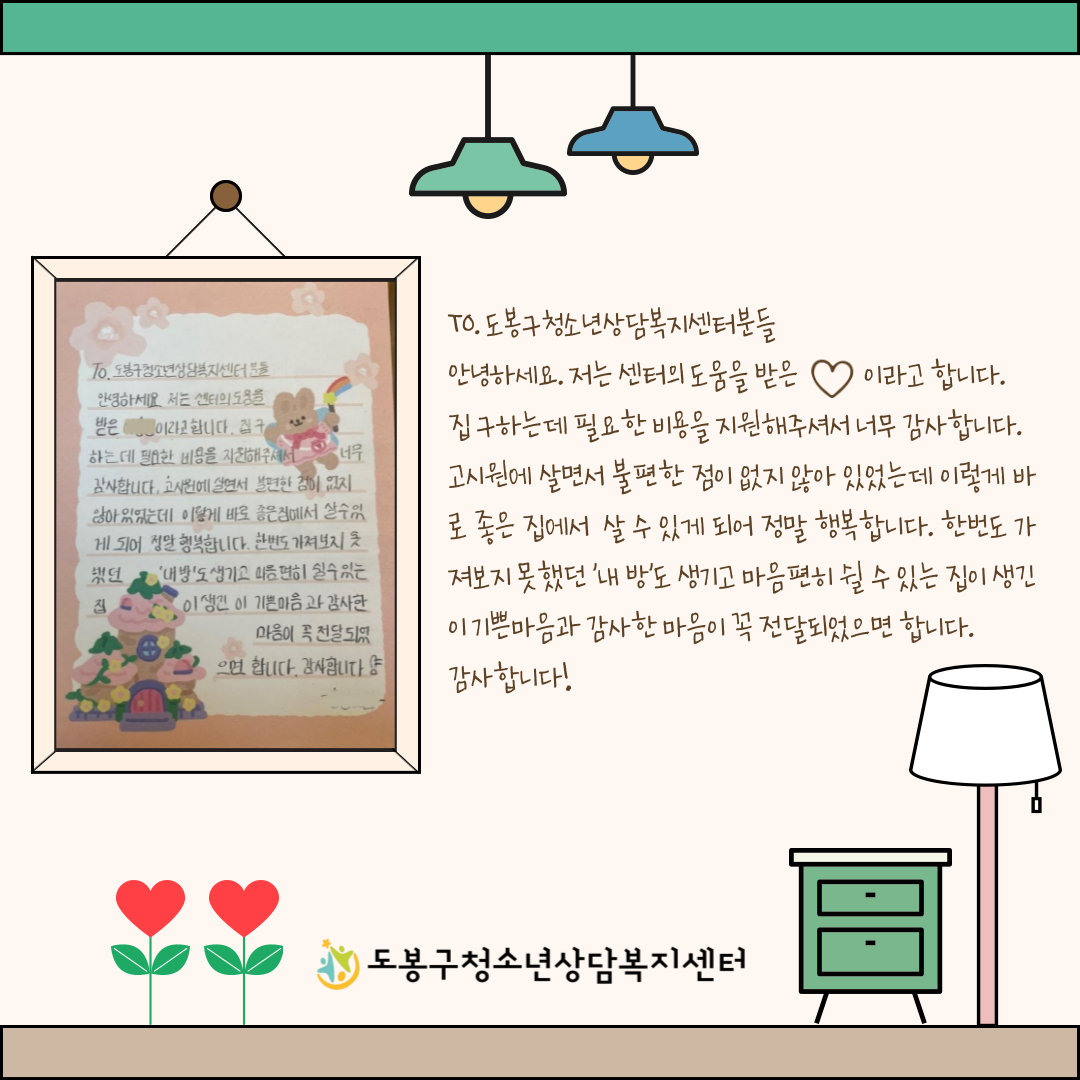 To. 도봉구청소년상담복지센터 분들
안녕하세요 저는 센터의 도움을
받은 이라고합니다. 집 구
하는데 필요한 비용을 지원해주셔서 너무
감사합니다. 고시원에 살면서 불편한 점이 없지
않아 있었는데 이렇게 바로 좋은집에서 살수있
게 되어 정말 행복합니다. 한번도 가져보지 못
했던 '내 방'도 생기고 마음편히 쉴수있는
집 이 생긴 이 기쁜마음 과 감사한
마음이 꼭 전달되었
으면 합니다. 감사합니다
TO. 도봉구청소년상담복지센터분들
안녕하세요. 저는 센터의 도움을 받은 ♡ 이라고 합니다.
집 구하는데 필요한 비용을 지원해주셔서 너무 감사합니다.
고시원에 살면서 불편한 점이 없지 않아 있었는데 이렇게 바
로 좋은 집에서 살 수 있게 되어 정말 행복합니다. 한번도 가
져보지 못했던 '내 방'도 생기고 마음편히 쉴 수 있는 집이 생긴
이 기쁜마음과 감사한 마음이 꼭 전달되었으면 합니다.
감사합니다!
도봉구청소년상담복지센터